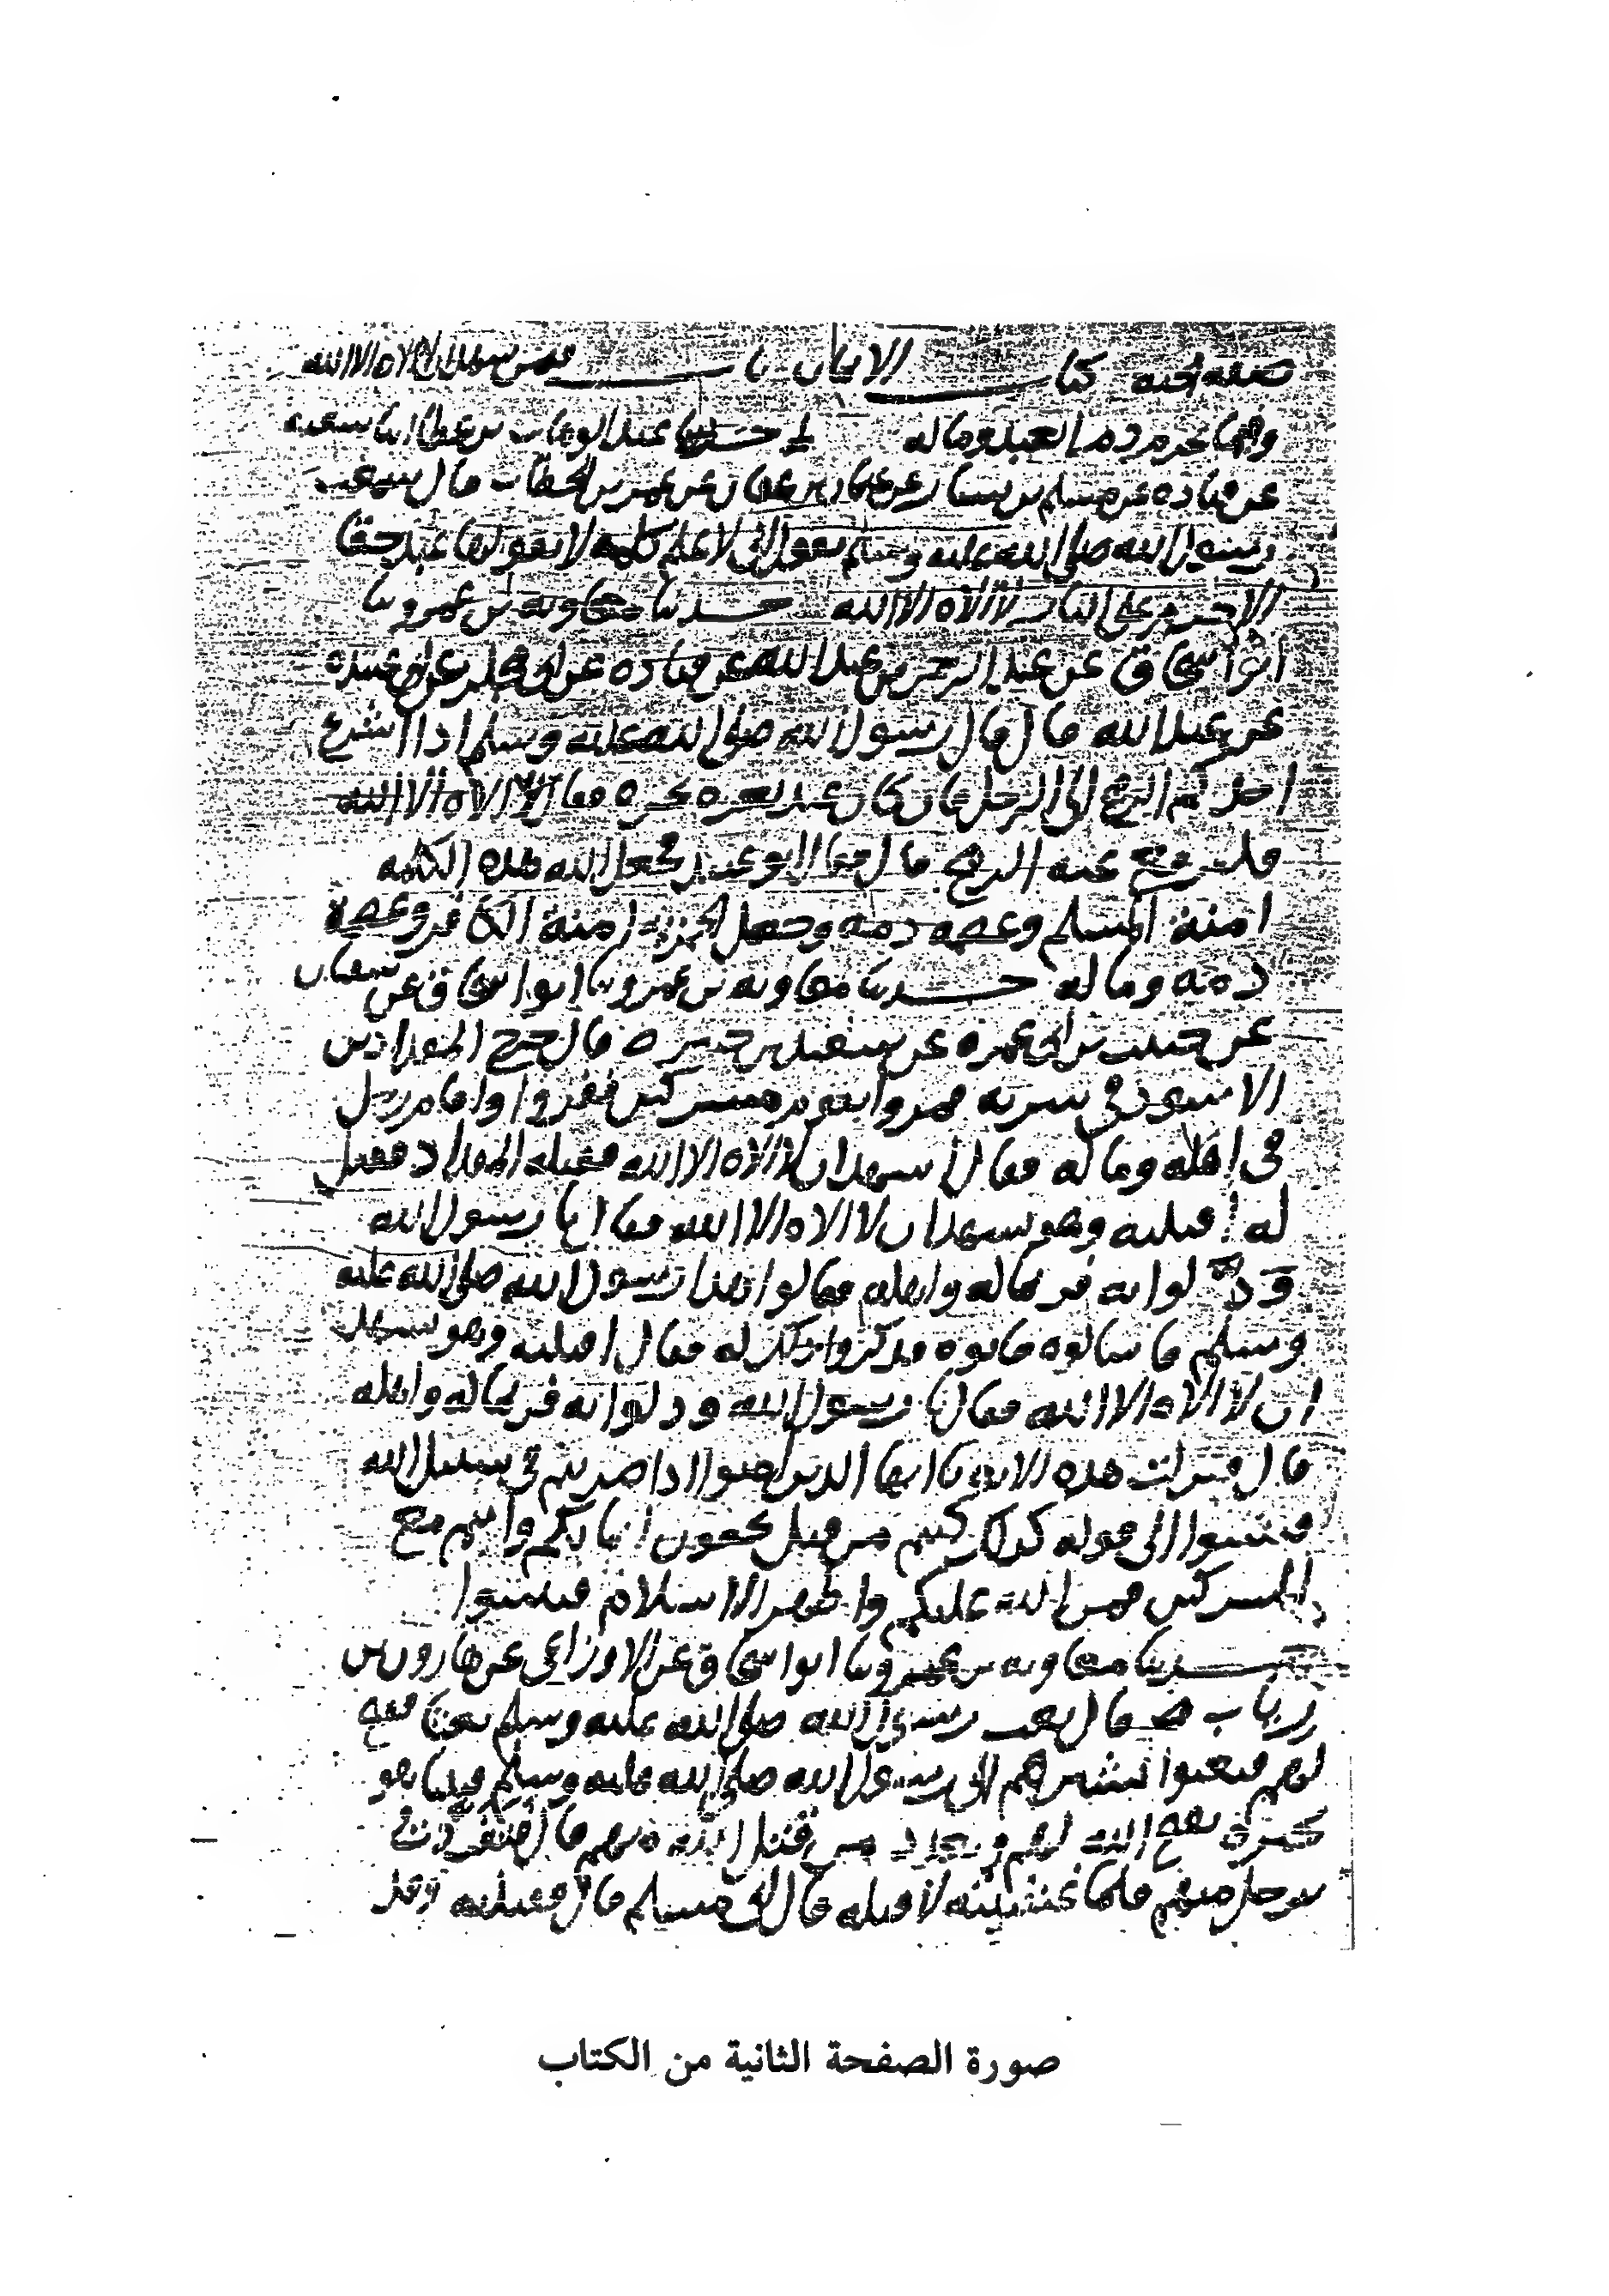 كتاب الايمان باب فيمن شهد ان لا اله الا الله
وبما يحرم دم العبد وماله حدثنا عبد الوهاب بن عطا انبا سعيد
عن قتاده عن مسلم بن يسار عن عثمان بن عفان عن عمر بن الخطاب قال سمعت
رسول الله صلى الله عليه وسلم يقول اني لاعلم كلمه لا يقولها عبد حقا
الا حرم على النار لا اله الا الله حدثنا معاويه بن عمرو ثنا
ابو اسحاق عن عبد الرحمن بن عبد الله عن قتاده عن ابي مجلز عن ابي عبيده
عن عبد الله قال قال رسول الله صلى الله عليه وسلم اذا اشرع
احدكم الرمح الى الرجل فان كان عند ثغره نحره فقال لا اله الا الله
فليرفع عنه الرمح قال فقال ابو عبيد فجعل الله هذه الكلمه
امنة المسلم وعصمه دمه وجعل الجزيه امنة الكافر وعصمة
دمه وماله حدثنا معاويه بن عمرو ثنا ابو اسحاق عن سفيان
عن حبيب بن ابي عمره عن سعيد بن جبير قال خرج المقداد بن
الاسود في سريه فمروا بقوم مشركين ففروا واقام رجل
في اهله وماله فقال اشهد ان لا اله الا الله فقتله المقداد فقيل
له اقتلته وهو يشهد ان لا اله الا الله فقال يا رسول الله
ود لو انه فر بماله واهله فقالوا هذا رسول الله صلى الله عليه
وسلم فاسالوه فاتوه فذكروا ذلك له فقال اقتلته وهو يشهد
ان لا اله الا الله فقال يا رسول الله ود لو انه فر بماله واهله
قال فنزلت هذه الايه يا ايها الذين امنوا اذا ضربتم في سبيل الله
فتبينوا الى قوله كذلك كنتم من قبل تخفون ايمانكم وانتم مع
المشركين فمن الله عليكم واظهر الاسلام فتبينوا
حدثنا معاويه بن عمرو ثنا ابو اسحاق عن الاوزاعي عن هارون بن
رياب قال بعث رسول الله صلى الله عليه وسلم بعثا ففتح
لهم فبعثوا بشيرهم الى رسول الله صلى الله عليه وسلم فبينا هو
يخبره بفتح الله لهم وبعدد من قتل الله منهم قال
برجل منهم فلما غشيته لاقتله قال اني مسلم قال فقتلته وقد
صورة الصفحة الثانية من الكتاب